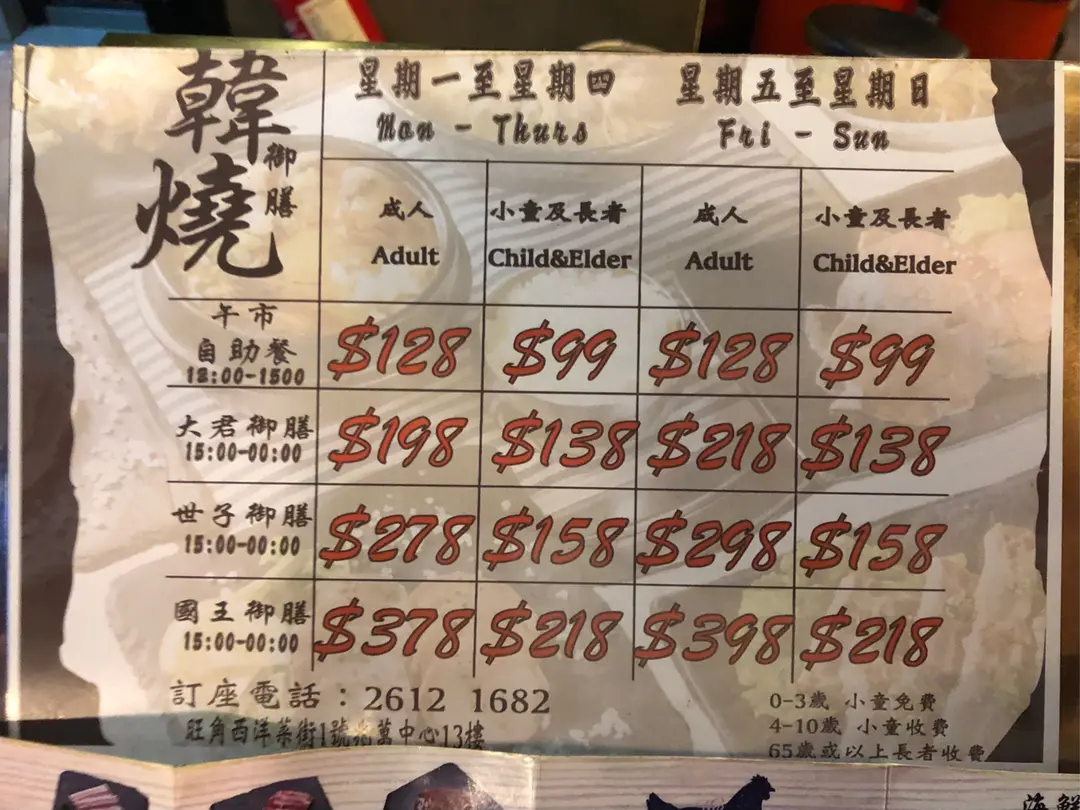 韓燒
御膳
星期一至星期四
星期五至星期日
Mon - Thurs
Fri - Sun
成人
小童及長者
成人
小童及長者
Adult
Child&Elder
Adult
Child&Elder
午市
自助餐
12:00-1500
$128
$99
$128
$99
大君御膳
15:00-00:00
$198
$138
$218
$138
世子御膳
15:00-00:00
$278
$158
$298
$158
國王御膳
15:00-00:00
$378
$218
$398
$218
訂座電話：2612 1682
旺角西洋菜街1號兆萬中心13樓
0-3歲 小童免費
4-10歲 小童收費
65歲或以上長者收費
海鮮